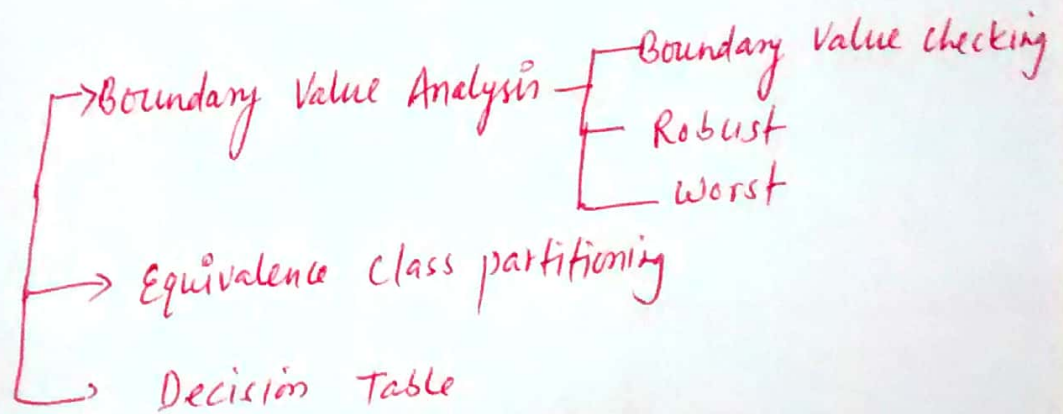 Boundary Value Analysis
Boundary Value checking
Robust
Worst
Equivalence Class partitioning
Decision Table